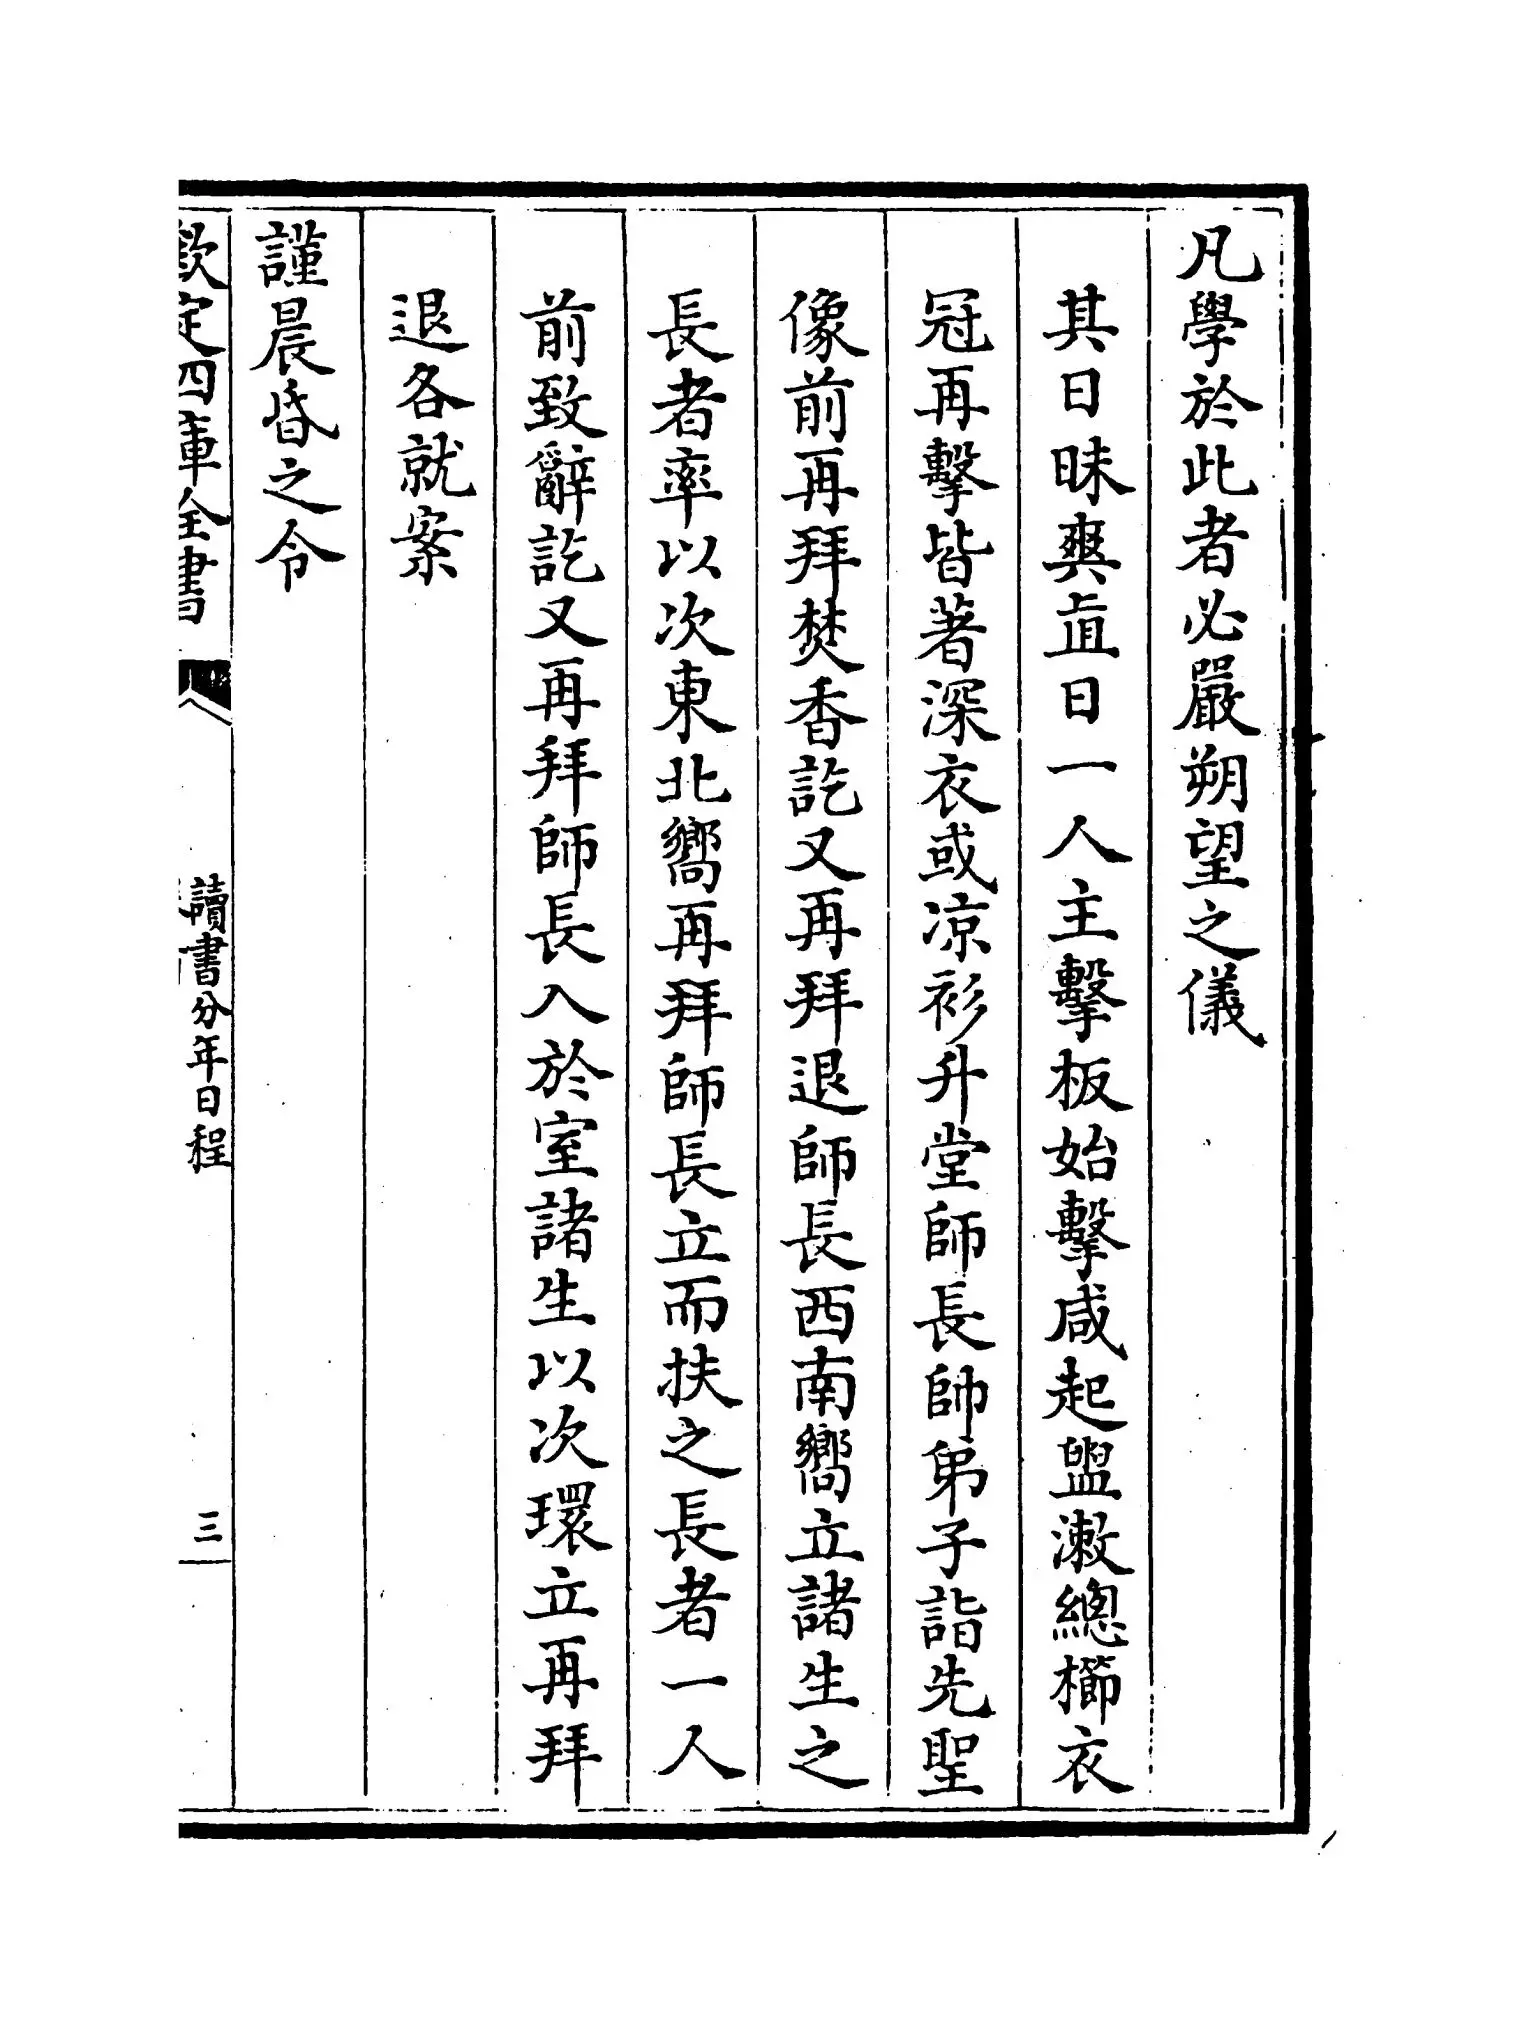 凡學於此者必嚴朔望之儀
其日昧爽直日一人主擊板始擊咸起盥漱總櫛衣
冠再擊皆著深衣或凉衫升堂師長帥弟子詣先聖
像前再拜焚香訖又再拜退師長西南嚮立諸生之
長者率以次東北嚮再拜師長立而扶之長者一人
前致辭訖又再拜師長入於室諸生以次環立再拜
退各就案
謹晨昏之令
欽定四庫全書
讀書分年日程
三